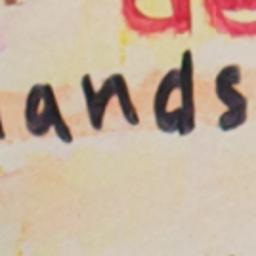 de
ands